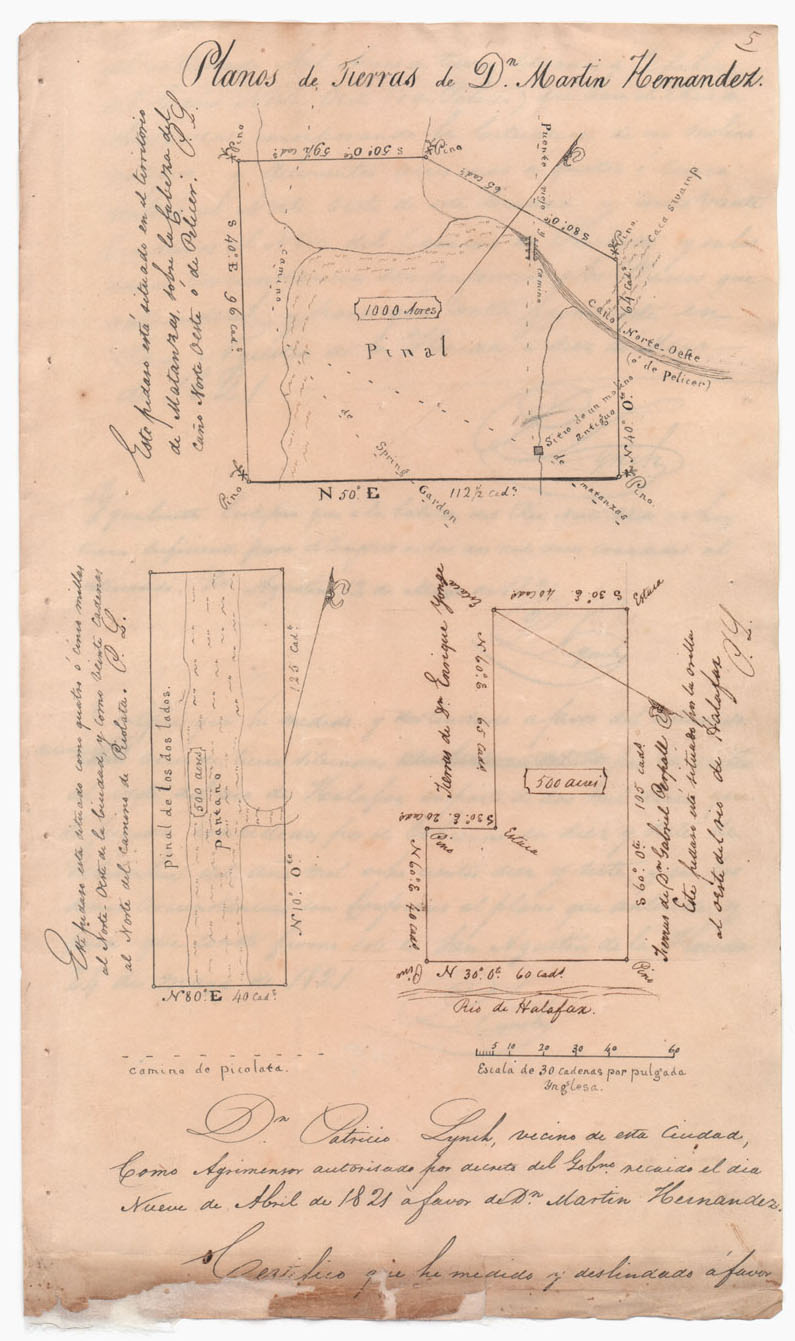 (5
Planos de Tierras de Dn. Martin Hernandez.
Este pedaso está situado en el territorio
de Matanzas, sobre la Cabeza del
caño Norte Oeste ó de Pelicer. P. L.
Pino
S 50°. Ote. 59½ cads.
Pino
65 cads.
S 80°. Ote.
Pino
Puente viejo y camino
Caca Swamp
64 cads.
N 40° O.te
S 40°. E 96 cads.
camino
1000 Acres
Pinal
Caño Norte-Oeste
(ó de Pelicer)
Sitio de un molino
antiguo
de Spring Garden
de matanzas
Pino
N 50°. E 112½ cads.
Pino.
Este pedaso está situado como quatro ó cinco millas
al Norte-Oeste de la Ciudad, y como Veinte Cadenas
al Norte del Camino de Picolata. P. L.
pinal de los dos lados.
500 acres
pantano
125 Cads.
N 10°. Ote.
N 80°. E 40 cads.
camino de picolata.
Tierras de Dn. Enrique Yonge
Estaca
S 30°. E. 40 cads.
Estaca
N 60°. E 65 cads.
500 acres
S 30°. E. 20 cads.
Pino
Estaca
N 60°. E 40 cads.
S 60°. Ote. 105 cads.
Tierras de Dn. Gabriel Perpall
Este pedaso está situado por la orilla
al oéste del rio de Halafax
P. L.
Pino
N 30°. Ote. 60 cads.
Pino
Rio de Halafax.
5 10 20 30 40 60
Escala de 30 cadenas por pulgada
Ynglesa.
Dn. Patricio Lynch, vecino de esta Ciudad,
Como Agrimensor autorisado por decreto del Gobno. recaido el dia
Nueve de Abril de 1821 á favor de Dn. Martin Hernandez.
Certifico que he medido y deslindado á favor